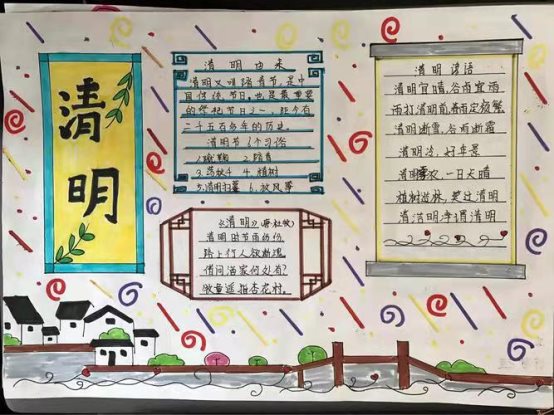 清明
清明由来
清明又叫踏青节，是中
国传统节日，也是最重要
的祭祀节日之一，距今有
二千五百多年的历史
清明节6个习俗
2.踏青
3.荡秋千 4.植树
5.清明扫墓 6.放风筝
《清明》(唐·杜牧)
清明时节雨纷纷
路上行人欲断魂
借问酒家何处有?
牧童遥指杏花村。
清明谚语
清明宜晴,谷雨宜雨
雨打清明前,春雨定频繁
清明断雪,谷雨断霜
清明冷,好年景
一日天晴
植树造林,莫过清明